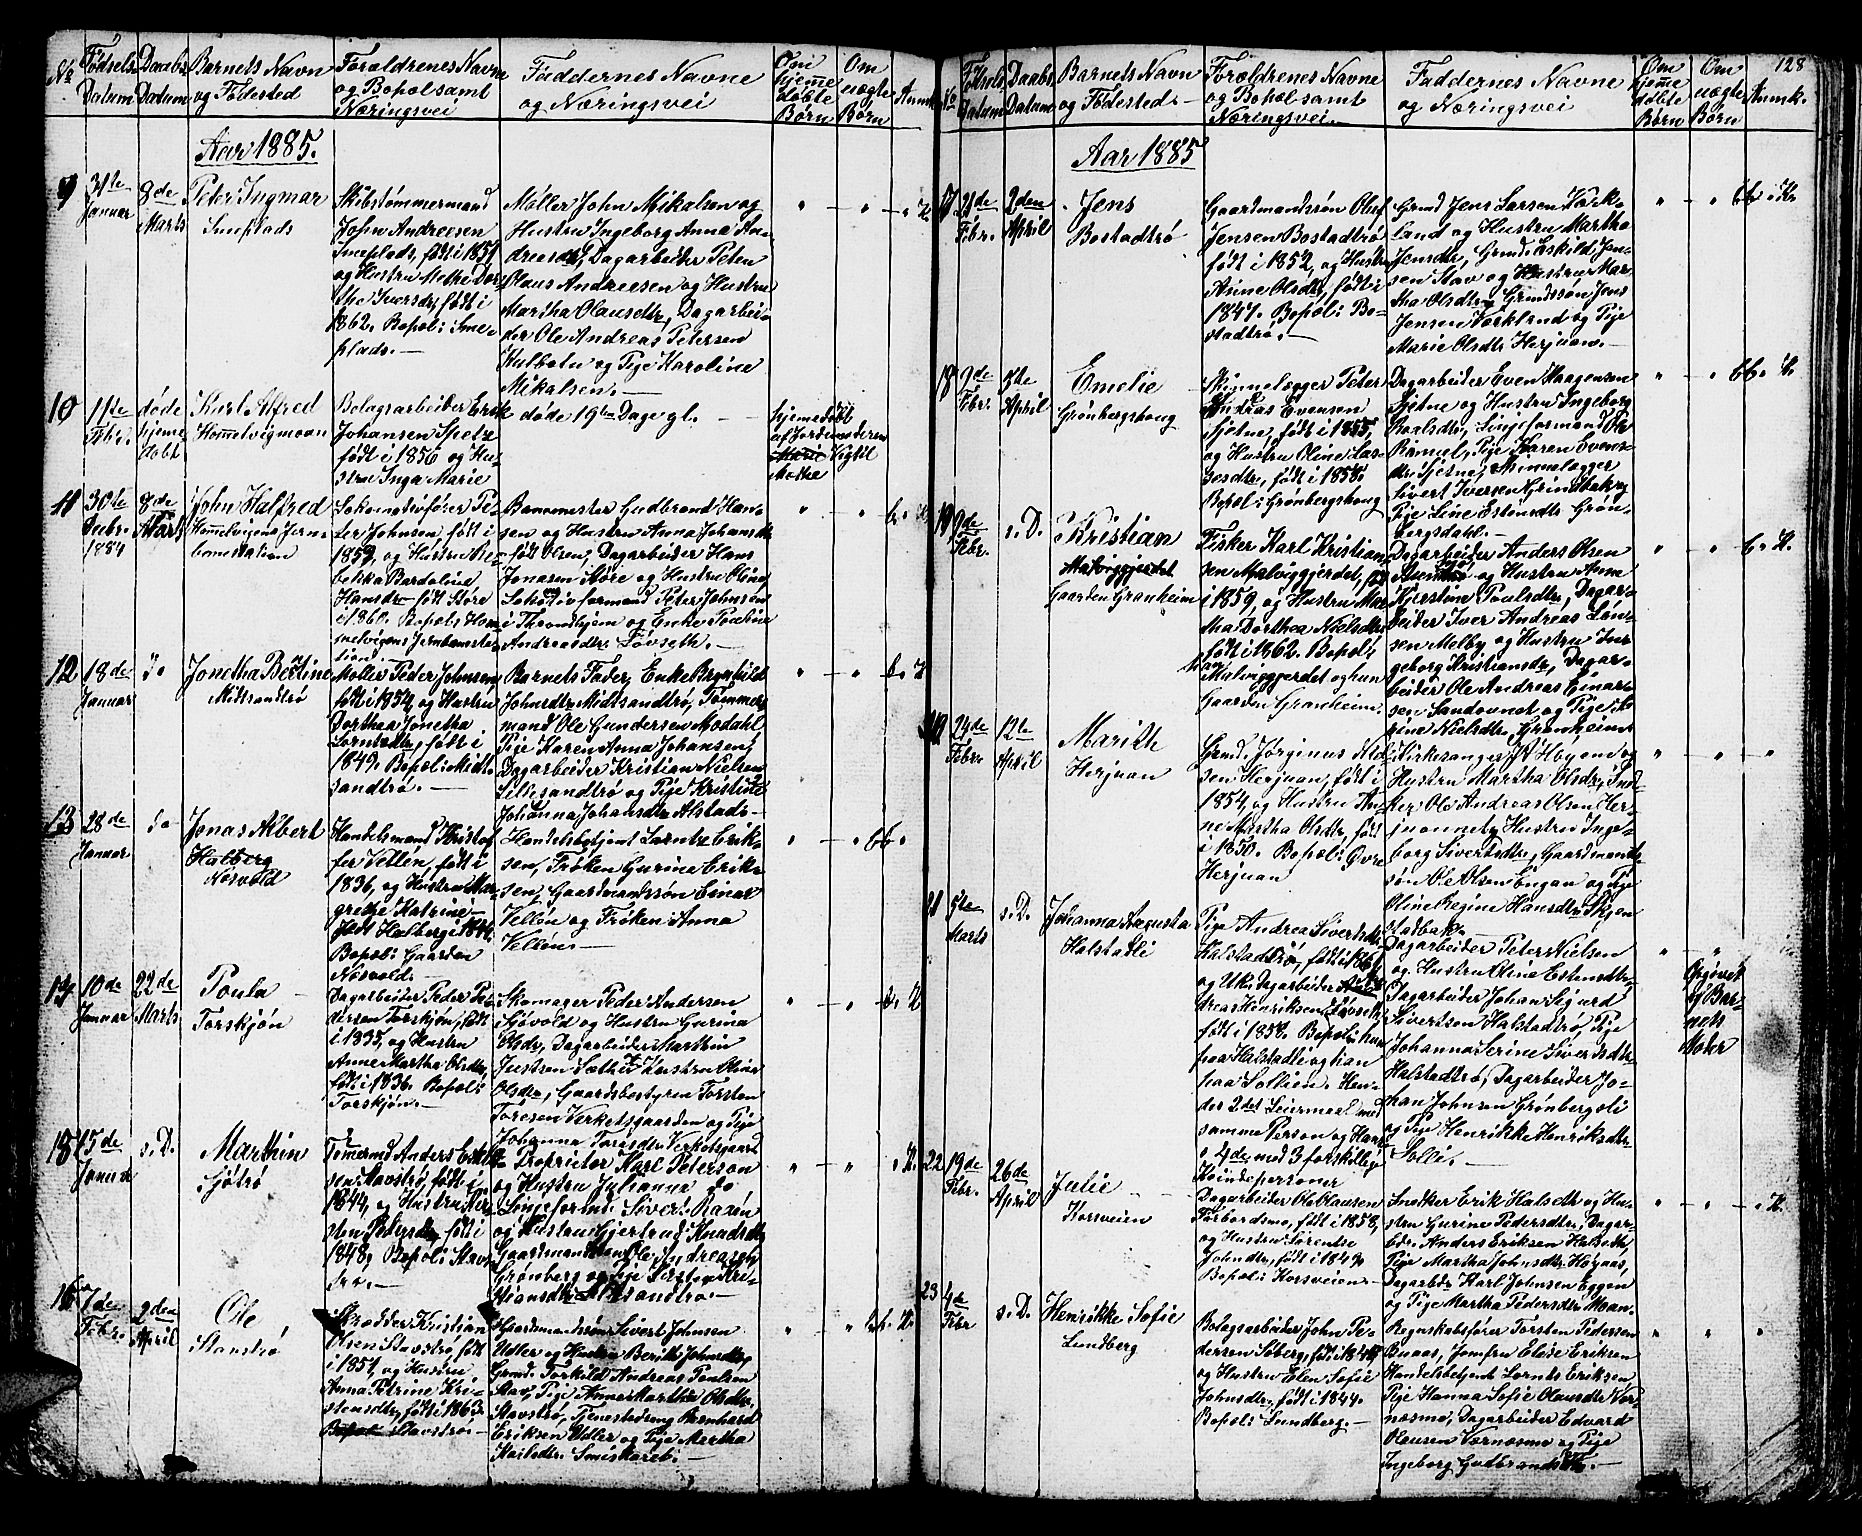 No
Fødsels
Datum
Daabs
Datum
Barnets Navn
og Fødested
Forældrenes Navne
og Bopæl samt
Næringsvei
Faddernes Navne
og Næringsvei
Om
hjemme
døbte
Børn
Om
uægte
Børn
Anmk.
Aar 1885.
9
31te
Januar
8de
Marts
Peter Ingmar
Smeplads
Skibstømmermand
John Andreesen
Smeplads, født i 1857
og Hustru Methe Dor-
the Iversdtr, født i
1862. Bopæl: Sme-
plads.—
Møller John Mikalsen og
Hustru Ingeborg Anna An-
dreasdtr, Dagarbeider Peter
Olaus Andreesen og Hustru
Martha Olausdtr, Dagarbei-
der Ole Andreas Petersen
Hulbotn og Pige Karoline
Mikalsen.—
10
11te
Febr.
døde
hjemme
døbt
Karl Alfred
Hommelvigmoan
Bolagsarbeider Erik
Johansen Spets
født i 1856 og Hu-
stru Inga Marie
døde 19 Dage gl.—
hjemmedøbt
af Jordemoderen
11
30te
Decbr.
1884
8de
Marts
John Halfred
Hommelvigens Jern-
banestation
Lokomotivfører Pe-
ter Johnsen, født i
1859, og Hustru Re-
bekka Bardoline
Hansdtr født Støre
i 1860. Bopæl: Hom-
melvigens Jernbanesta-
tion.—
Banemester Gudbrand Han-
sen og Hustru Anna Johansdtr
født Olsen, Dagarbeider Hans
Jonasen Støre og Hustru Olina
Lokotivformand Peter Johnsen
i Throndhjem og Enke Pauline
Andreasdtr. Løvseth.—
12
18de
Januar
do
Jonetha Bertine
Mitsandtrø
Møller Peder Johnsen,
født i 1854, og Hustru
Dorthea Jonetha
Lorntsdtr, født i
1849. Bopæl: Midt-
sandtrø.—
Barnets Fader, Enke Bergnhild
Johnsdtr Midtsandtrø, Tømmer-
mand Ole Gundersen Modahl
Pige Karen Anna Johansen,
Dagarbeider Kristian Nielsen
Lillesandtrø og Pige Kristine
Johanna Johansdtr Alstads-
13
28de
Januar
do
Jonas Albert
Halberg
Nøsvold
Handelsmand Kristof-
fer Vellén, født i
1836, og Hustru Mar-
grethe Katrine
født Halberg i 1844.
Bopæl: Gaarden
Nøsvold.—
Handelsbetjent Larnts Erik-
sen, Frøken Gurina Erik-
sen, Gaardmandssøn Einar
Vellén og Frøken Anna
Vellén.—
14
10de
Januar
22de
Marts
Poula
Torskjøn
Dagarbeider Peder Pe-
dersen Torskjøn, født
i 1835, og Hustru
Anne Martha Olsdtr,
født i 1836. Bopæl:
Torskjøn.—
Skomager Peder Andersen
Sjøvold og Hustru Gurina
Olsdtr, Dagarbeider Marthin
Justsen Sæther Hustru Olina
Olsdtr, Gaardsbestyrer Torsten
Toresen Verketsgaarden og Pige
Johanna Toresdtr Verketsgaard
15
15de
Januar
s. D.
Marthin
Sjøtrø
Tømermd Anders Eskild-
sen Stavstrø, født i
1844, og Hustru Kir-
sten Pedersdtr, født i
1848, Bopæl: Stavs-
trø.—
Proprietør Karl Peterson
og Hustru Julianna do
Lingeformd. Sivert Raxen
og Hustru Gjertrud Knudsdtr
Gaardmandssøn Ole Andreas
Grønberg og Pige Kirsten Kri-
stiansdtr Midtsandtrø.—
16
7de
Febr.
2den
April
Ole
Stavstrø
Skrædder Kristian
Olsen Stavstrø, født
i 1857, og Hustru
Anna Petrine Kri-
stensdtr, født i 1863.
Bopæl: Stavstrø.—
Gaardmandssøn Sivert Johnsen
Udler og Hustru Berit Johnsdtr,
Grmd. Torkild Andreas Poulsen
Stav, Pige Anne Martha Olsdtr
Stavstrø, Tjenestedreng Bernhard
Eriksen Udler og Pige Martha
Karlsdtr. Smiskaret.—
128
Fødsels
Datum
Daabs
Datum
Barnets Navn
og Fødested
Forældrenes Navne
og Bopæl samt
Næringsvei.
Faddernes Navne
og Næringsvei
Om
hjemme
døbte
Børn
Om
uægte
Børn
Anmk.
Aar 1885
17
21de
Febr.
2den
April
Jens
Bostadtrø
Gaardmandssøn Oluf
Jensen Bostadtrø
født i 1852, og Hustru
Anine Olsdtr, født i
1847. Bopæl: Bo-
stadtrø.—
Grmd Jens Larsen Værk-
land og Hustru Martha
Jensdtr, Grmd. Eskild Jen-
sen Stav og Hustru Mar-
tha Olsdtr, Grmdssøn Jens
Jensen Værkland og Pige
Marie Olsdtr Herjuan.—
18
9de
Febr.
5te
April
Emelie
Grønbergshoug
Skinnelægger Peter
Andreas Evensen
Sjetne, født i 1855,
og Hustru Oline Las-
sesdtr, født i 1858.
Bopæl: Grønbergshoug
Dagarbeider Even Haagensen
Sjetne og Hustru Ingeborg
Roaldsdtr, Lingeformand Ole
Rimul, Pige Karen Evens-
dtr Sjetne, Skinnelægger
Sivert Iversen Grindbak og
Pige Line Estensdtr Grøn-
bergsdahl.—
19
9de
Febr.
s. D.
Kristian
Malviggjerdet
Gaarden Granheim
Fisker Karl Kristian-
sen Malviggjerdet, født
i 1859, og Hustru Mar-
tha Dorthea Nielsdtr
født i 1862. Bopæl:
han Malviggjerdet og hun
Gaarden Granheim.
Dagarbeider Anders Olsen
og Hustru Anne
Kjerstine Poulsdtr, Dagar-
beider Iver Andreas Løn-
sen Melby og Hustru Inge-
borg Kristiansdtr, Dagar-
beider Ole Andreas Einar-
sen Sandovnet og Pige
Nielsdtr, Granheim
24de
Febr.
12te
April
Marith
Herjuan
Grmd. Jørginus Ol-
sen Herjuan, født i
1854, og Hustru An-
ne Martha Olsdtr, født
i 1850. Bopæl: Øvre
Herjuan
Kirkesanger Høyem og
Hustru Martha Olsdtr, Snek-
ker Ole Andreas Olsen Her-
juannet, Hustru Inge-
borg Sivertsdtr, Gaardmands-
søn Ole Olsen Engan og Pige
Oline Regine Hansdtr Skjen-
stadbak.—
21
5te
Marts
s. D.
Johanna Augusta
Halstadli
Pige Andrea Sivertsdtr
Halstadtrø, født i 1861
og Uk. Dagarbeider An-
dreas Henriksen Løvseth,
født i 1852. Bopæl: hun
paa Halstadli og han
paa Sollien. Hen-
des 2det Leiermaal med
samme Person og Hans
4de med 3 forskellige
Kvindepersoner
Dagarbeider Peter Nielsen
og Hustru Oline Estensdtr,
Dagarbeider Johan Sigurd
Sivertsen Halstadtrø, Pige
Johanna Serine Sivertsdtr
Halstadtrø, Dagarbeider Jo-
han Johnsen Grønbergsli
og Pige Henrikke Henriksdtr
Solli.—
Opgivet
af Bar-
nets
Moder
22
19de
Febr.
26de
April
Julie
Korsveien
Dagarbeider Ole Olausen
Forbordsmo, født i 1858,
og Hustru Lorentse
Johndtr, født i 1849.
Bopæl: Korsveien
Snedker Erik Halseth og Hu-
stru Gurine Pedersdtr, Dagar-
bdr. Anders Eriksen Halseth,
Pige Martha Johnsdtr Høgaas,
Dagarbdr Karl Johnsen Eggen
og Pige Martha Pedersdtr Moan.
23
4de
Febr
s. D.
Henrikke Sofie
Lundberg
Bolagsarbeider John Pe-
dersen Søberg, født i 1845
og Hustru Elen Sofie
Johnsdtr, født i 1844.
Bopæl: Lundberg.—
Regnskabsfører Torsten Pedersen
Buaas, Jomfru Elise Eriksen
Handelsbetjent Lornts Eriksen
Pige Hanna Sofie Olausdtr Vær-
nesmo, Dagarbeider Edvard
Olausen Værnesmo og Pige
Ingeborg Gudbrandsdtr.—